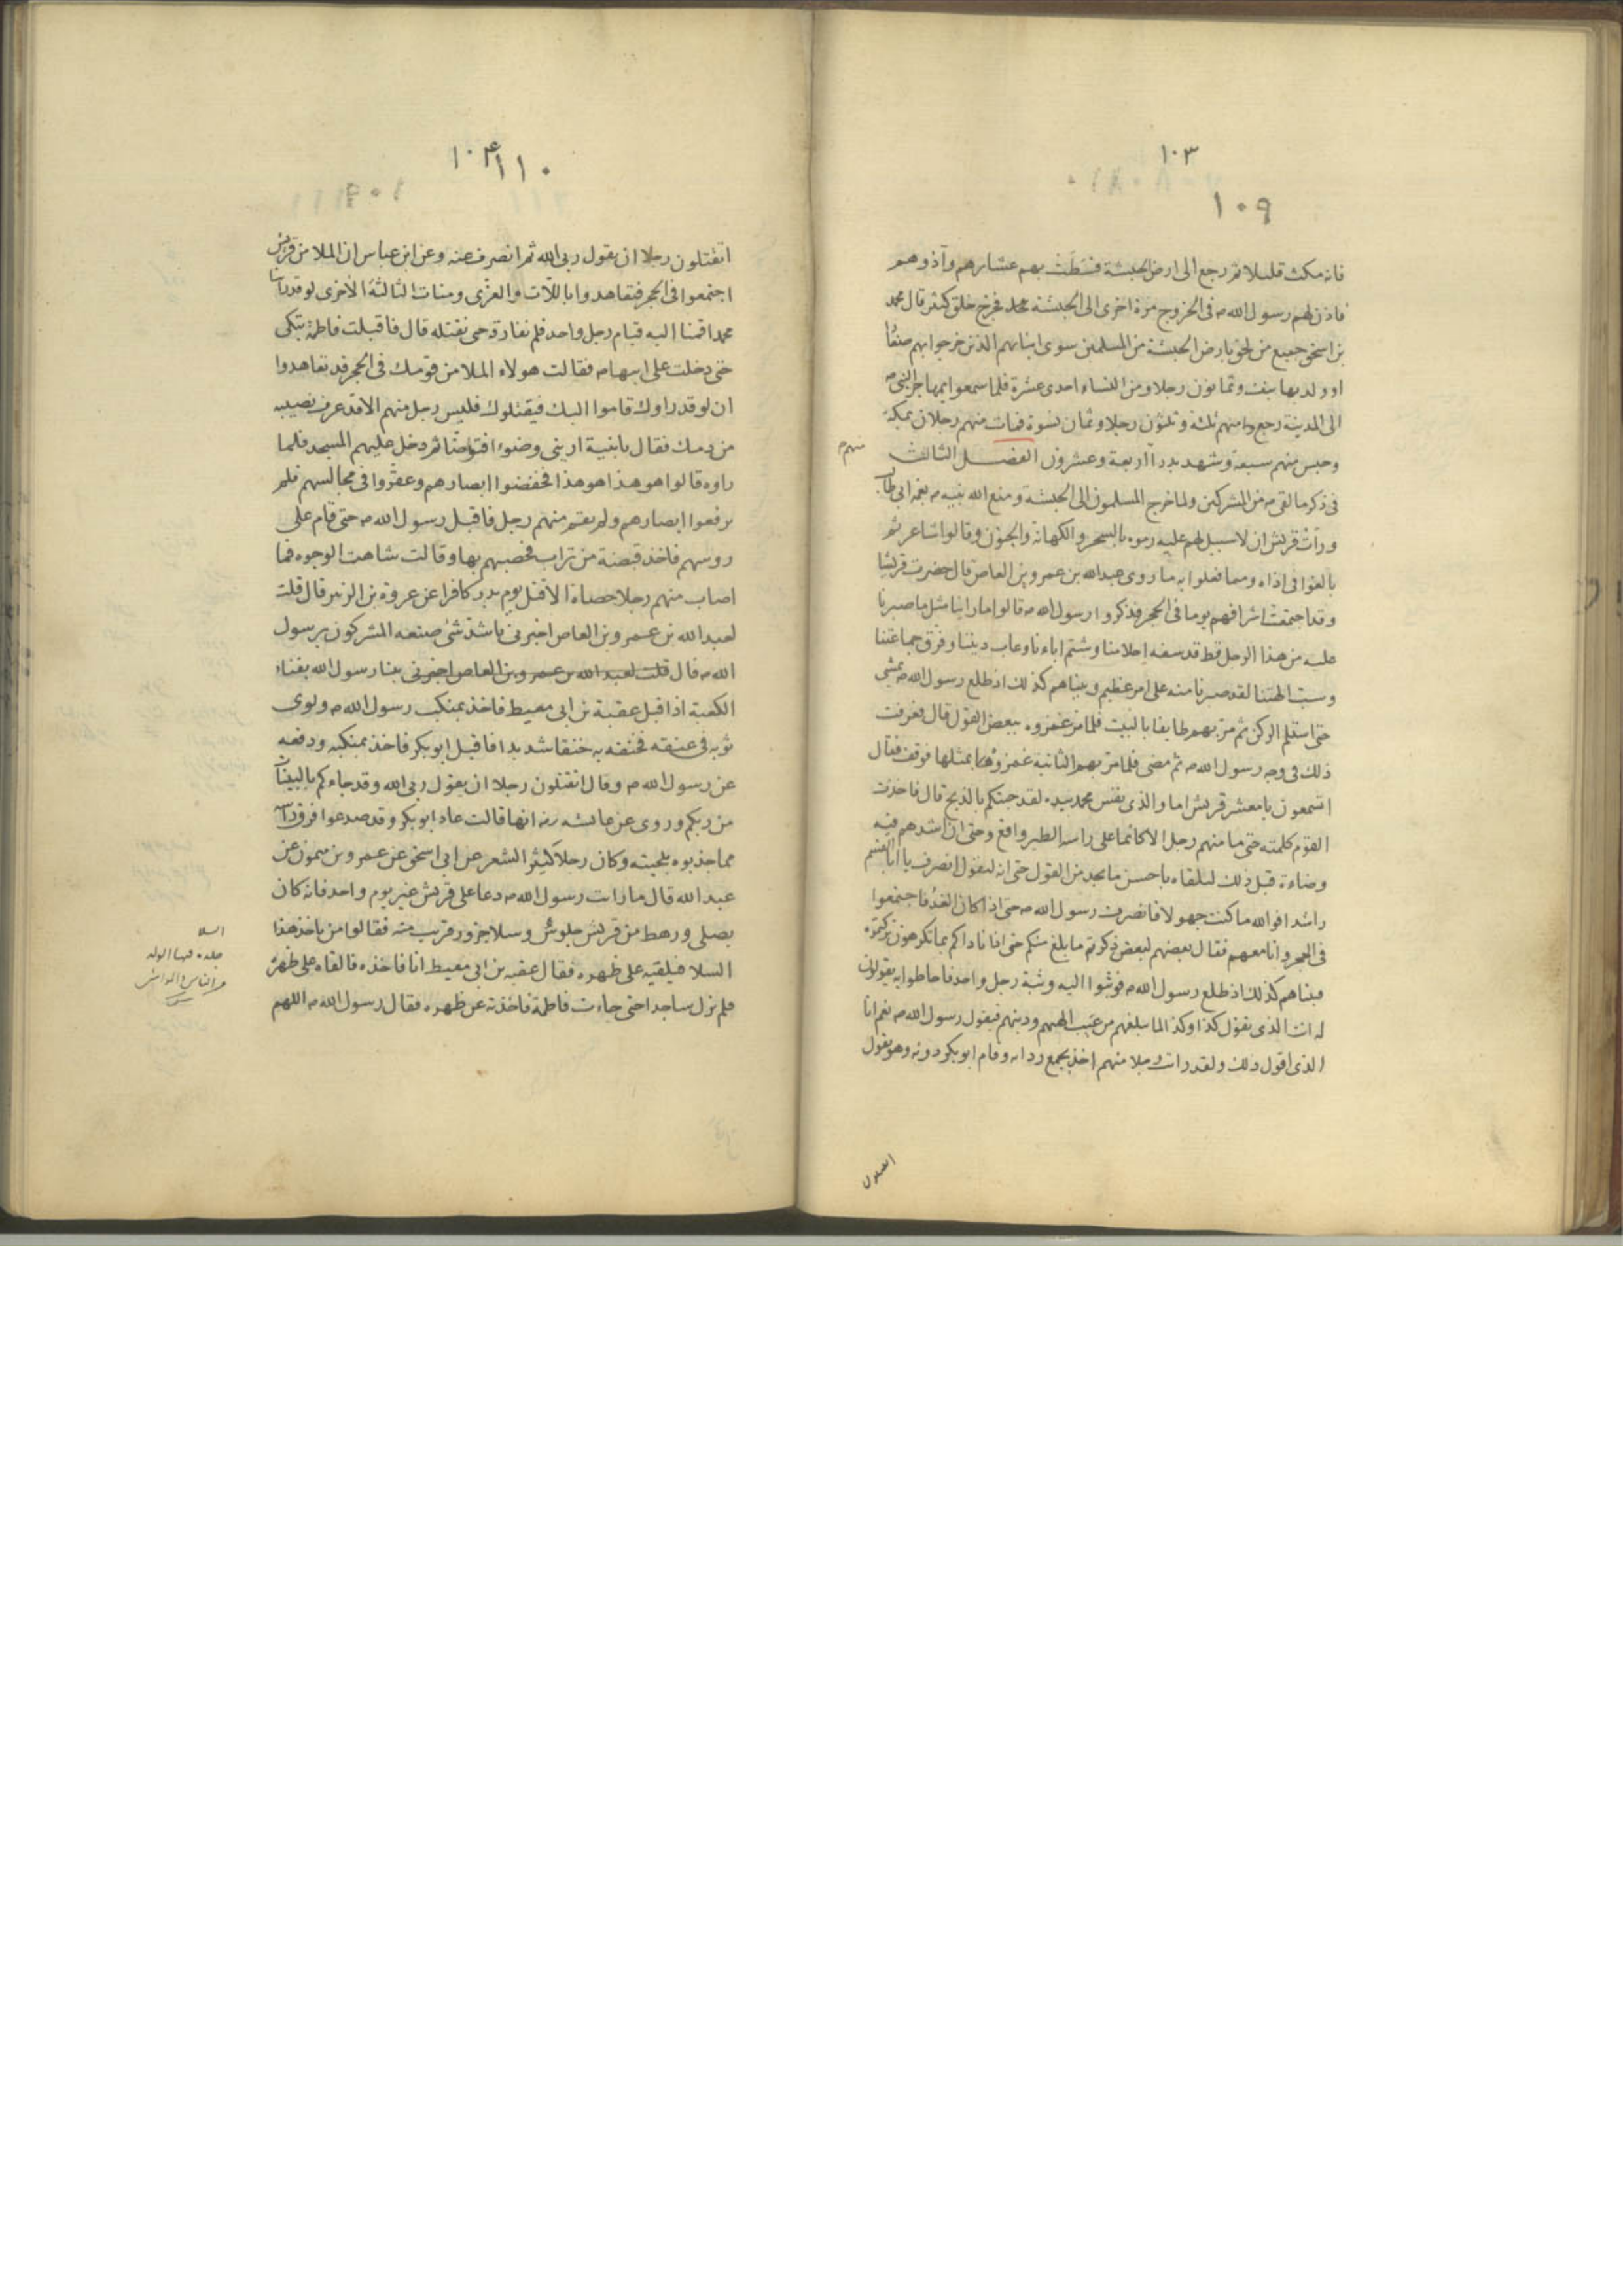 ١٠٣
١٠٩
فانه مكث قليلا ثم رجع الى ارض الحبشة فسَطَتْ بهم عشايرهم وآذوهم
فاذن لهم رسول الله ص فى الخروج مرة اخرى الى الحبشة فخرج خلق كثير قال محمد
بن اسحق جميع من لحق بارض الحبشة من المسلمين سوى ابنائهم الذين خرجوا بهم صغارا
او ولد بها نيف وثمانون رجلا ومن النساء احدى عشرة فلما سمعوا بمهاجر النبى ص
الى المدينة رجع منهم ثلثة وثلثون رجلا وثمان نسوة فمات منهم رجلان بمكة
وحبس منهم سبعة وشهد بدرا اربعة وعشرون الفصــل الثالث
منهم
فى ذكر ما لقى ص من المشركين ولما خرج المسلمون الى الحبشة ومنع الله نبيه ص بعمه ابى طالب
ورات قريش ان لا سبيل لهم عليه رموه بالسحر والكهانة والجنون وقالوا شاعر ثم
بالغوا فى اذاه ومما فعلوا به ما روى عبدالله بن عمرو بن العاص قال حضرت قريشا
وقد اجتمعت اشرافهم يوما فى الحجر فذكروا رسول الله ص قالوا ما راينا مثل ما صبرنا
عليه من هذا الرجل قط قد سفه احلامنا وشتم اباءنا وعاب ديننا وفرق جماعتنا
وسب الهتنا لقد صبرنا منه على امر عظيم وبيناهم كذلك اذ طلع رسول الله ص يمشى
حتى استلم الركن ثم مر بهم طايفا بالبيت فلما مر غمزوه ببعض القول قال فعرفت
ذلك فى وجه رسول الله ص ثم مضى فلما مر بهم الثانية غمزوه بمثلها فوقف فقال
اتسمعون يا معشر قريش اما والذى نفس محمد بيده لقد جئتكم بالذبح قال فاخذت
القوم كلمته حتى ما منهم رجل الا كانما على راسه الطير واقع وحتى ان اشدهم فيه
وضاءة قبل ذلك ليلقاه باحسن ما يجد من القول حتى انه ليقول انصرف يا ابا القسم
راشدا فوالله ما كنت جهولا فانصرف رسول الله ص حتى اذا كان الغد فاجتمعوا
فى الحجر وانا معهم فقال بعضهم لبعض ذكرتم ما بلغ منكم حتى اذا ناداكم بما تكرهون تركتموه
فبيناهم كذلك اذ طلع رسول الله ص فوثبوا اليه وثبة رجل واحد فاحاطوا به يقولون
له انت الذى تقول كذا وكذا لما بلغهم من عيب الهتهم ودينهم فيقول رسول الله ص نعم انا
الذى اقول ذلك ولقد رايت رجلا منهم اخذ بجمع ردائه وقام ابو بكر دونه وهو يقول
اتقتلون
١٠٤
١١٠
اتقتلون رجلا ان يقول ربى الله ثم انصرف عنه وعن ابن عباس ان الملا من قريش
اجتمعوا فى الحجر فتعاهدوا باللات والعزى ومنات الثالثة الاخرى لو قد راينا
محمدا قمنا اليه قيام رجل واحد فلم نفارقه حتى نقتله قال فاقبلت فاطمة تبكى
حتى دخلت على ابيها ص فقالت هولاء الملا من قومك فى الحجر قد تعاهدوا
ان لو قد راوك قاموا اليك فيقتلوك فليس رجل منهم الا قد عرف نصيبه
من دمك فقال يا بنية ارينى وضوءا فتوضا ثم دخل عليهم المسجد فلما
راوه قالوا هو هذا هو هذا فخفضوا ابصارهم وعقروا فى مجالسهم فلم
يرفعوا ابصارهم ولم يقم منهم رجل فاقبل رسول الله ص حتى قام على
روسهم فاخذ قبضة من تراب فحصبهم بها وقالت شاهت الوجوه فما
اصاب منهم رجلا حصاة الا قتل يوم بدر كافرا عن عروة بن الزبير قال قلت
لعبد الله بن عمرو بن العاص اخبرنى باشد شئ صنعه المشركون برسول
الله ص قال قلت لعبد الله بن عمرو بن العاص اخبرنى بينا رسول الله بفناء
الكعبة اذ اقبل عقبة بن ابى معيط فاخذ بمنكب رسول الله ص ولوى
ثوبه فى عنقه فخنقه به خنقا شديدا فاقبل ابو بكر فاخذ بمنكبه ودفعه
عن رسول الله ص وقال اتقتلون رجلا ان يقول ربى الله وقد جاءكم بالبينات
من ربكم وروى عن عائشه رض انها قالت عاد ابو بكر وقد صدعوا فرق راسه
مما جذبوه بلحيته وكان رجلا كثير الشعر عن ابى اسحق عن عمرو بن ميمون عن
عبد الله قال ما رات رسول الله ص دعا على قريش غير يوم واحد فانه كان
يصلى ورهط من قريش جلوس وسلا جزور قريب منه فقالوا من ياخذ هذا
السلا فيلقيه على ظهره فقال عقبه بن ابى معيط انا فاخذه فالقاه على ظهره
فلم يزل ساجدا حتى جاءت فاطمة فاخذته عن ظهره فقال رسول الله ص اللهم
السلا
جلدة فيها الولد